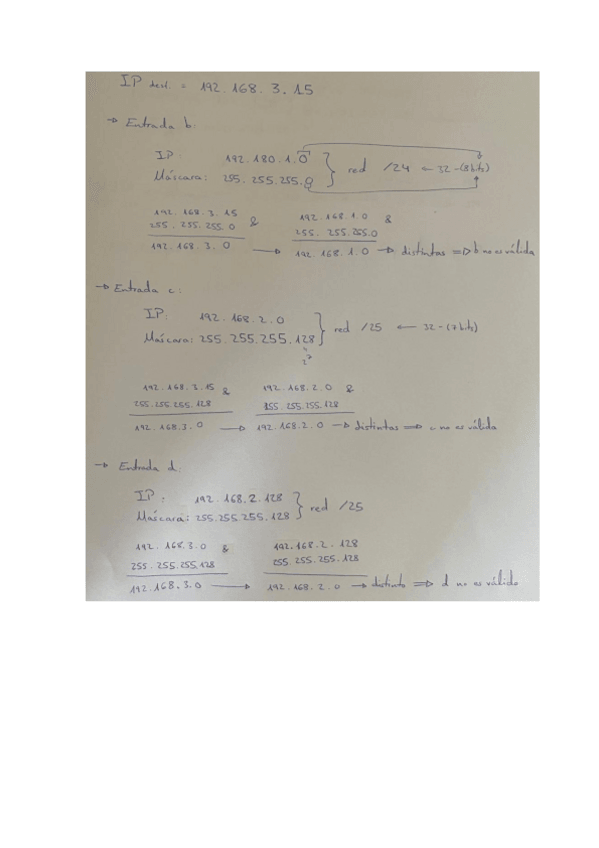 IP dest. = 192.168.3.15
→ Entrada b:
IP: 192.180.1.0
Máscara: 255.255.255.0 } red /24 ← 32-(8 bits)
192.168.3.15 & 192.168.1.0 &
255.255.255.0 255.255.255.0
192.168.3.0 → 192.168.1.0 → distintas => b no es válida
→ Entrada c:
IP: 192.168.2.0
Máscara: 255.255.255.128 } red /25 ← 32-(7 bits)
2⁷
192.168.3.15 & 192.168.2.0 &
255.255.255.128 255.255.255.128
192.168.3.0 → 192.168.2.0 → distintas => c no es válida
→ Entrada d:
IP: 192.168.2.128
Máscara: 255.255.255.128 } red /25
192.168.3.0 & 192.168.2.128
255.255.255.128 255.255.255.128
192.168.3.0 → 192.168.2.0 → distinto => d no es válido